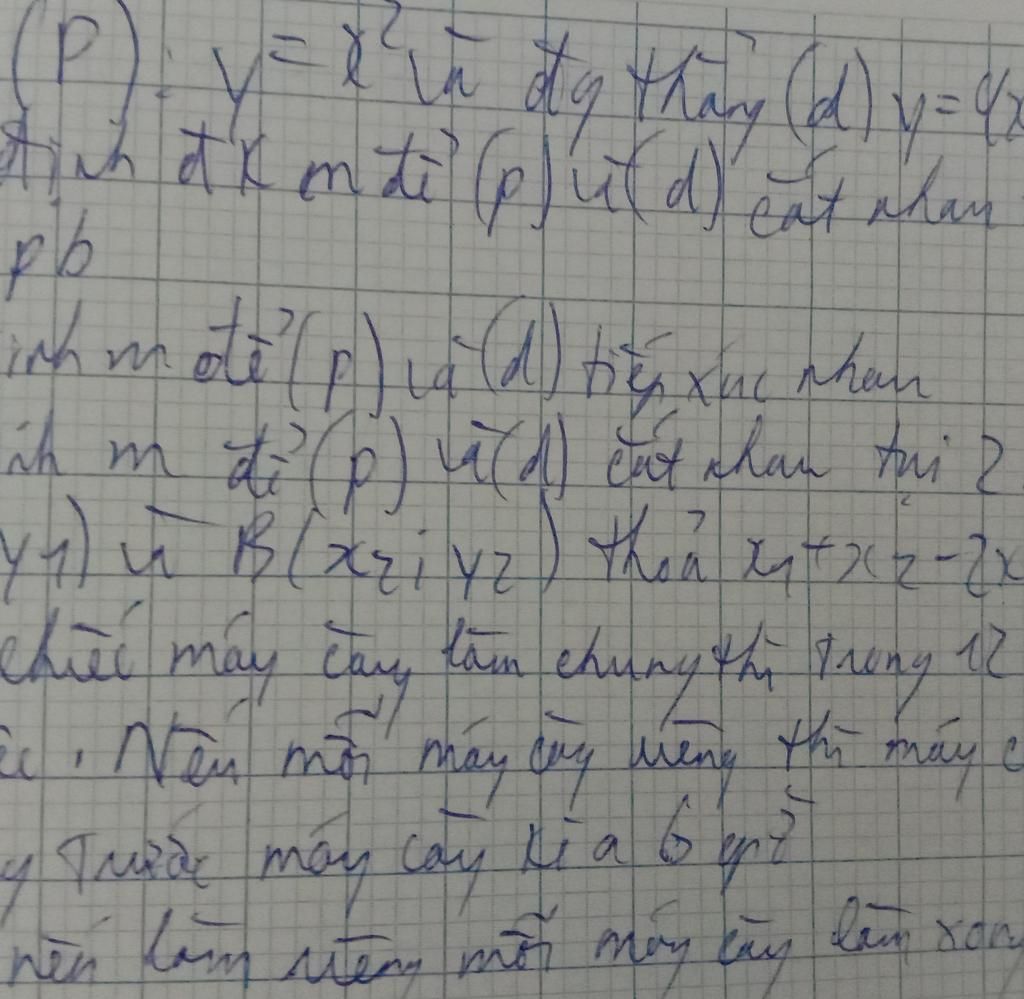 (P): y = x² và đg thẳng (d) y = 4x
định đk m để (p) và (d) cắt nhau
pb
ịnh m để (p) và (d) tiếp xúc nhau
nh m để (p) và (d) cắt nhau tại 2
y1) và B(x2; y2) thoả x1 + x2 - 2x
chiếc máy cày làm chung thì trong 12
ệc. Nếu mỗi máy cày riêng thì máy c
y trước máy cày kia 6 giờ
nếu làm riêng mỗi máy cày làm xong